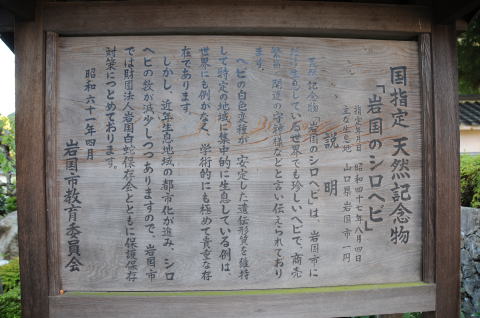 国指定 天然記念物
「岩国のシロヘビ」
指定年月日 昭和四十七年八月四日
主な生息地 山口県岩国市一円
説明
天然記念物「岩国のシロヘビ」は、岩国市に
だけ生息している世界でも珍しいヘビで、商売
繁昌、開運の守神様などと言い伝えられており
ます。
ヘビの白色変種が、安定した遺伝形質を維持
して特定の地域に集中的に生息している例は、
世界にも例がなく、学術的にも極めて貴重な存
在であります。
しかし、近年生息地域の都市化が進み、シロ
ヘビの数が減少しつつありますので、岩国市
では財団法人岩国白蛇保存会とともに保護保存
対策につとめております。
昭和六十一年四月
岩国市教育委員会